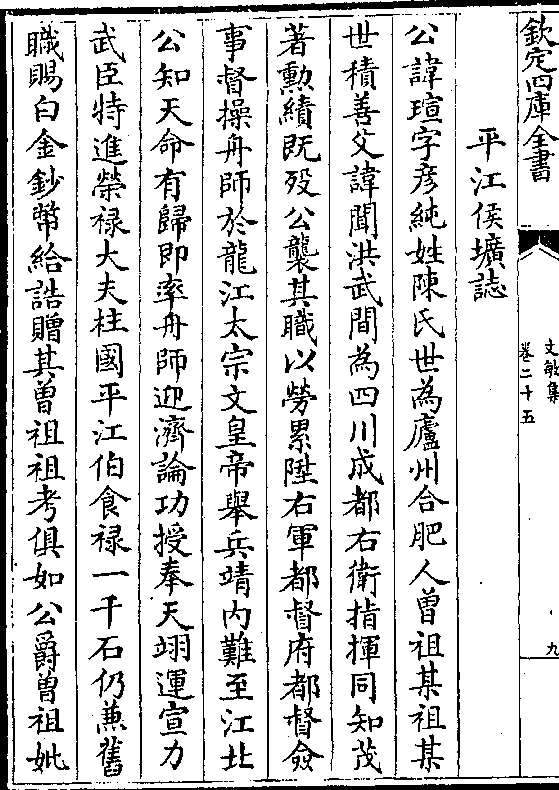 欽定四庫全書
文敏集
卷二十五
九
平江侯壙誌
公諱瑄字彦純姓陳氏世為廬州合肥人曽祖某祖某
世積善父諱聞洪武間為四川成都右衛指揮同知茂
著勲績既歿公襲其職以勞累陞右軍都督府都督僉
事督操舟師於龍江太宗文皇帝舉兵靖内難至江北
公知天命有歸即率舟師迎濟論功授奉天翊運宣力
武臣特進榮禄大夫柱國平江伯食禄一千石仍兼舊
職賜白金鈔幣給誥贈其曽祖祖考俱如公爵曽祖妣